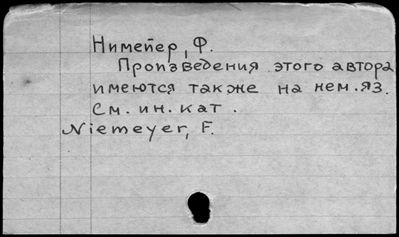 Нимейер, Ф.
Произведения этого автора
имеются также на нем. яз.
См. ин. кат.
Niemeyer, F.